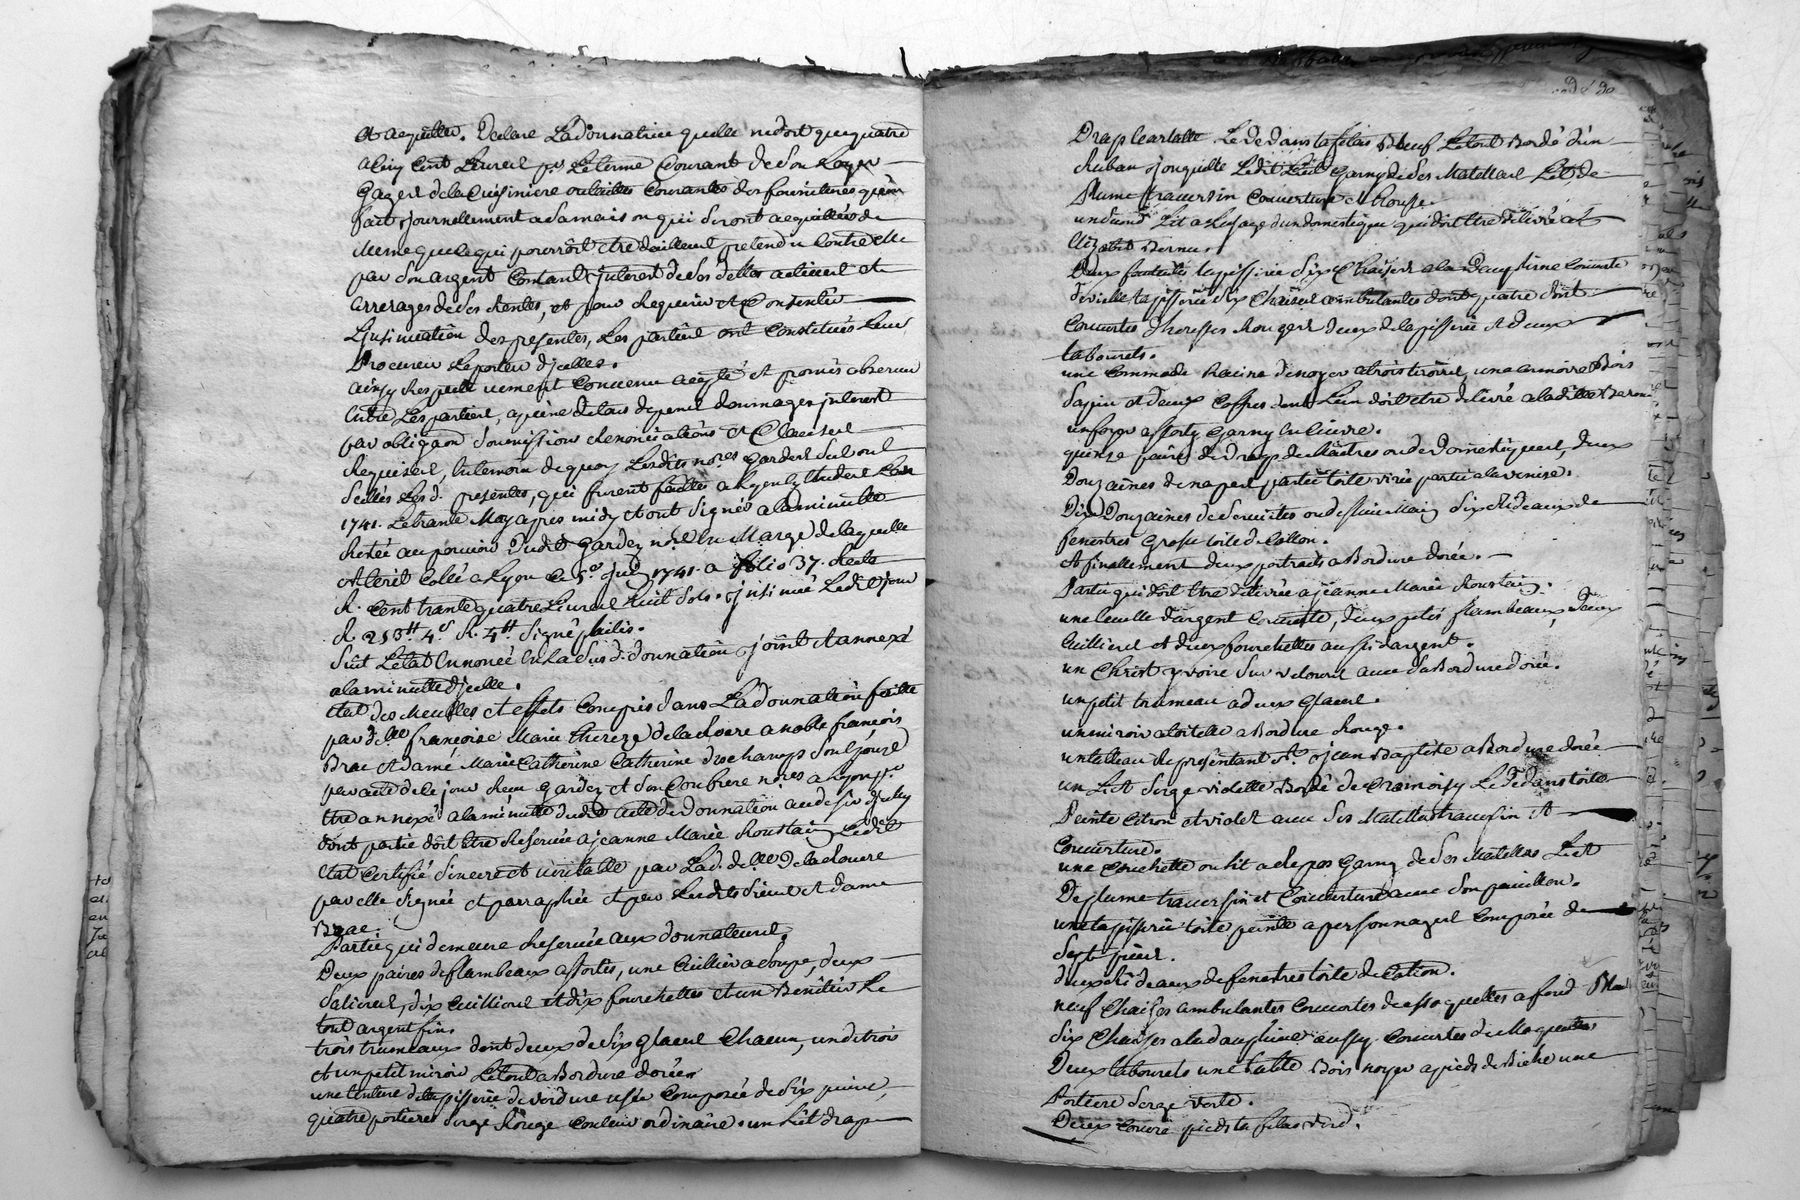 et acquittée. Declare Ladonnatrice quelle ne doit que quatre
a cinq Cent Livres pr. Le terme Courant de Son Loyer
Gages de la Cuisiniere ou tailles Courantes des fournitures qu'on
fait journellement a Sa maison qui Seront acquittées de
meme que ce qui pourroit etre d'ailleurs pretendu Contre elle
par Son argent Comtant Interest de Ses dettes actives et
arrerages de Ses Rentes, et pour Requerir et Consentir
L'insinuation des presentes, Les parties ont Constitués Leur
Procureur Le porteur d'jcelles.
ainsy Respectivement Convenu accepté et promis observer
Entre Les parties, a peine de tous depens dommages interest
par obligaon Soumissions Renonciations et Clauses
Requises, En temoin de quoy Lesdits nores Gardes Scel ont
Scellés Lesd. presentes, qui furent faittes a Lyon
1741. Le trante May apres midy et ont Signé a la minutte
Restée au pouvoir dudt Gardez nre. En Marge de laquelle
et Ecrit Collé a Lyon Ce 5e juin 1741. a folio 37. Recto
R. Cent trante quatre Livres huit Sols. jnsinué Ledit jour
R. 213tt 4s R. 4tt Signé
Suit L'etat Ennoncé En La Susd. donnation joint et annexé
a la minutte d'jcelle.
Etat des Meubles et effets Compris dans La donnation faitte
par dlle. françoise Marie thereze delachoere a noble françois
Brac et dame Marie Catherine Catherine deschamps Son Epouse
par acte de ce jour Receu Gardez et Son Confrere nores a Lyon pr.
Etre annexé a la minutte dudit acte de donnation
dont partie doit Etre Reservée a jeanne Marie Roustain Ledit
Etat Certifié Sincere et veritable par Lad. dlle. Delachoere
par elle Signée et parraphée et par Lesdits Sieur et dame
Brac.
Partie qui demeure Reservée aux donnateurs.
Deux paires de flambeaux assortis, une Cuillier a Soupe, deux
Salieres, dix Cuilliers et dix fourchettes et un Benitier Le
tout argent fin.
trois trumeaux dont deux de Six glaces Chacun, un de trois
et un petit miroir Le tout a Bordure dorées
une tenture de tapisserie de verdure usée Composée de Six pieces,
quatre portieres Serge Rouge Couleur ordinaire. un Lit drap
Drap Ecarlatte Le dedans taffetas Neuf Le tout Bordé d'un
Ruban jonquille Ledit Lit Garny de Ses Matellas Lit de
Plume traversin Couverture et house.
un Second Lit a L'usage d'un domestique qui doit Etre delivré a
Elizabet Bernu.
Deux fauteuils tapisserie Six Chaises a la Dauphine Couverte
de vielle tapisserie dix Chaises ambulantes dont quatre Sont
Couvertes d'housses Rouges deux de tapisserie et deux
tabourets.
une Commode Racine de noyer a trois tiroirs, une armoire Bois
Sapin et deux Coffres dont L'un doit etre delivré a laditte Bernu
un foyer assorty Garny En Cuivre.
quinze paires de Draps de Maitres ou de domestiques, deux
Douzaines de napes partie toile virée partie a la venise.
Dix Douzaines de Serviettes ou dessuie Main Six Rideaux de
fenestres Grosse toile de Cotton.
et finallement deux portraits a Bordure dorée.
Partie qui doit Etre delivrée a jeanne Marie Roustain.
une Ecuelle d'argent Couverte, deux petis flambeaux, Deux
Cuilliers et deux fourchettes aussi d'argent.
un Christ yvoire Sur velours avec Sa Bordure dorée.
un petit trumeau a deux Glaces.
un miroir a toilette a Bordure Rouge.
un tableau Representant St. jean Baptiste a Bordure dorée
un Lit Serge violette Bordé de Cramoisy Le dedans toile
Peinte Citron et violet avec Ses Matellas traversin et
Couverture.
une Couchette ou lit a Repos Garny de Ses Matellas Lit
De plume traversin et Couverture avec Son pavillon.
une tapisserie toile peinte a personnages Composée de
Sept pieces.
deux Rideaux de fenetres toile de Cotton.
neuf Chaises ambulantes Couvertes de Moquettes a fond Blanc
Six Chaises a la dauphine aussy Couvertes de Moquettes
Deux tabourets une table Bois noyer a pieds de Biche une
Portiere Serge verte.
Deux Couvre pieds taffetas verd.